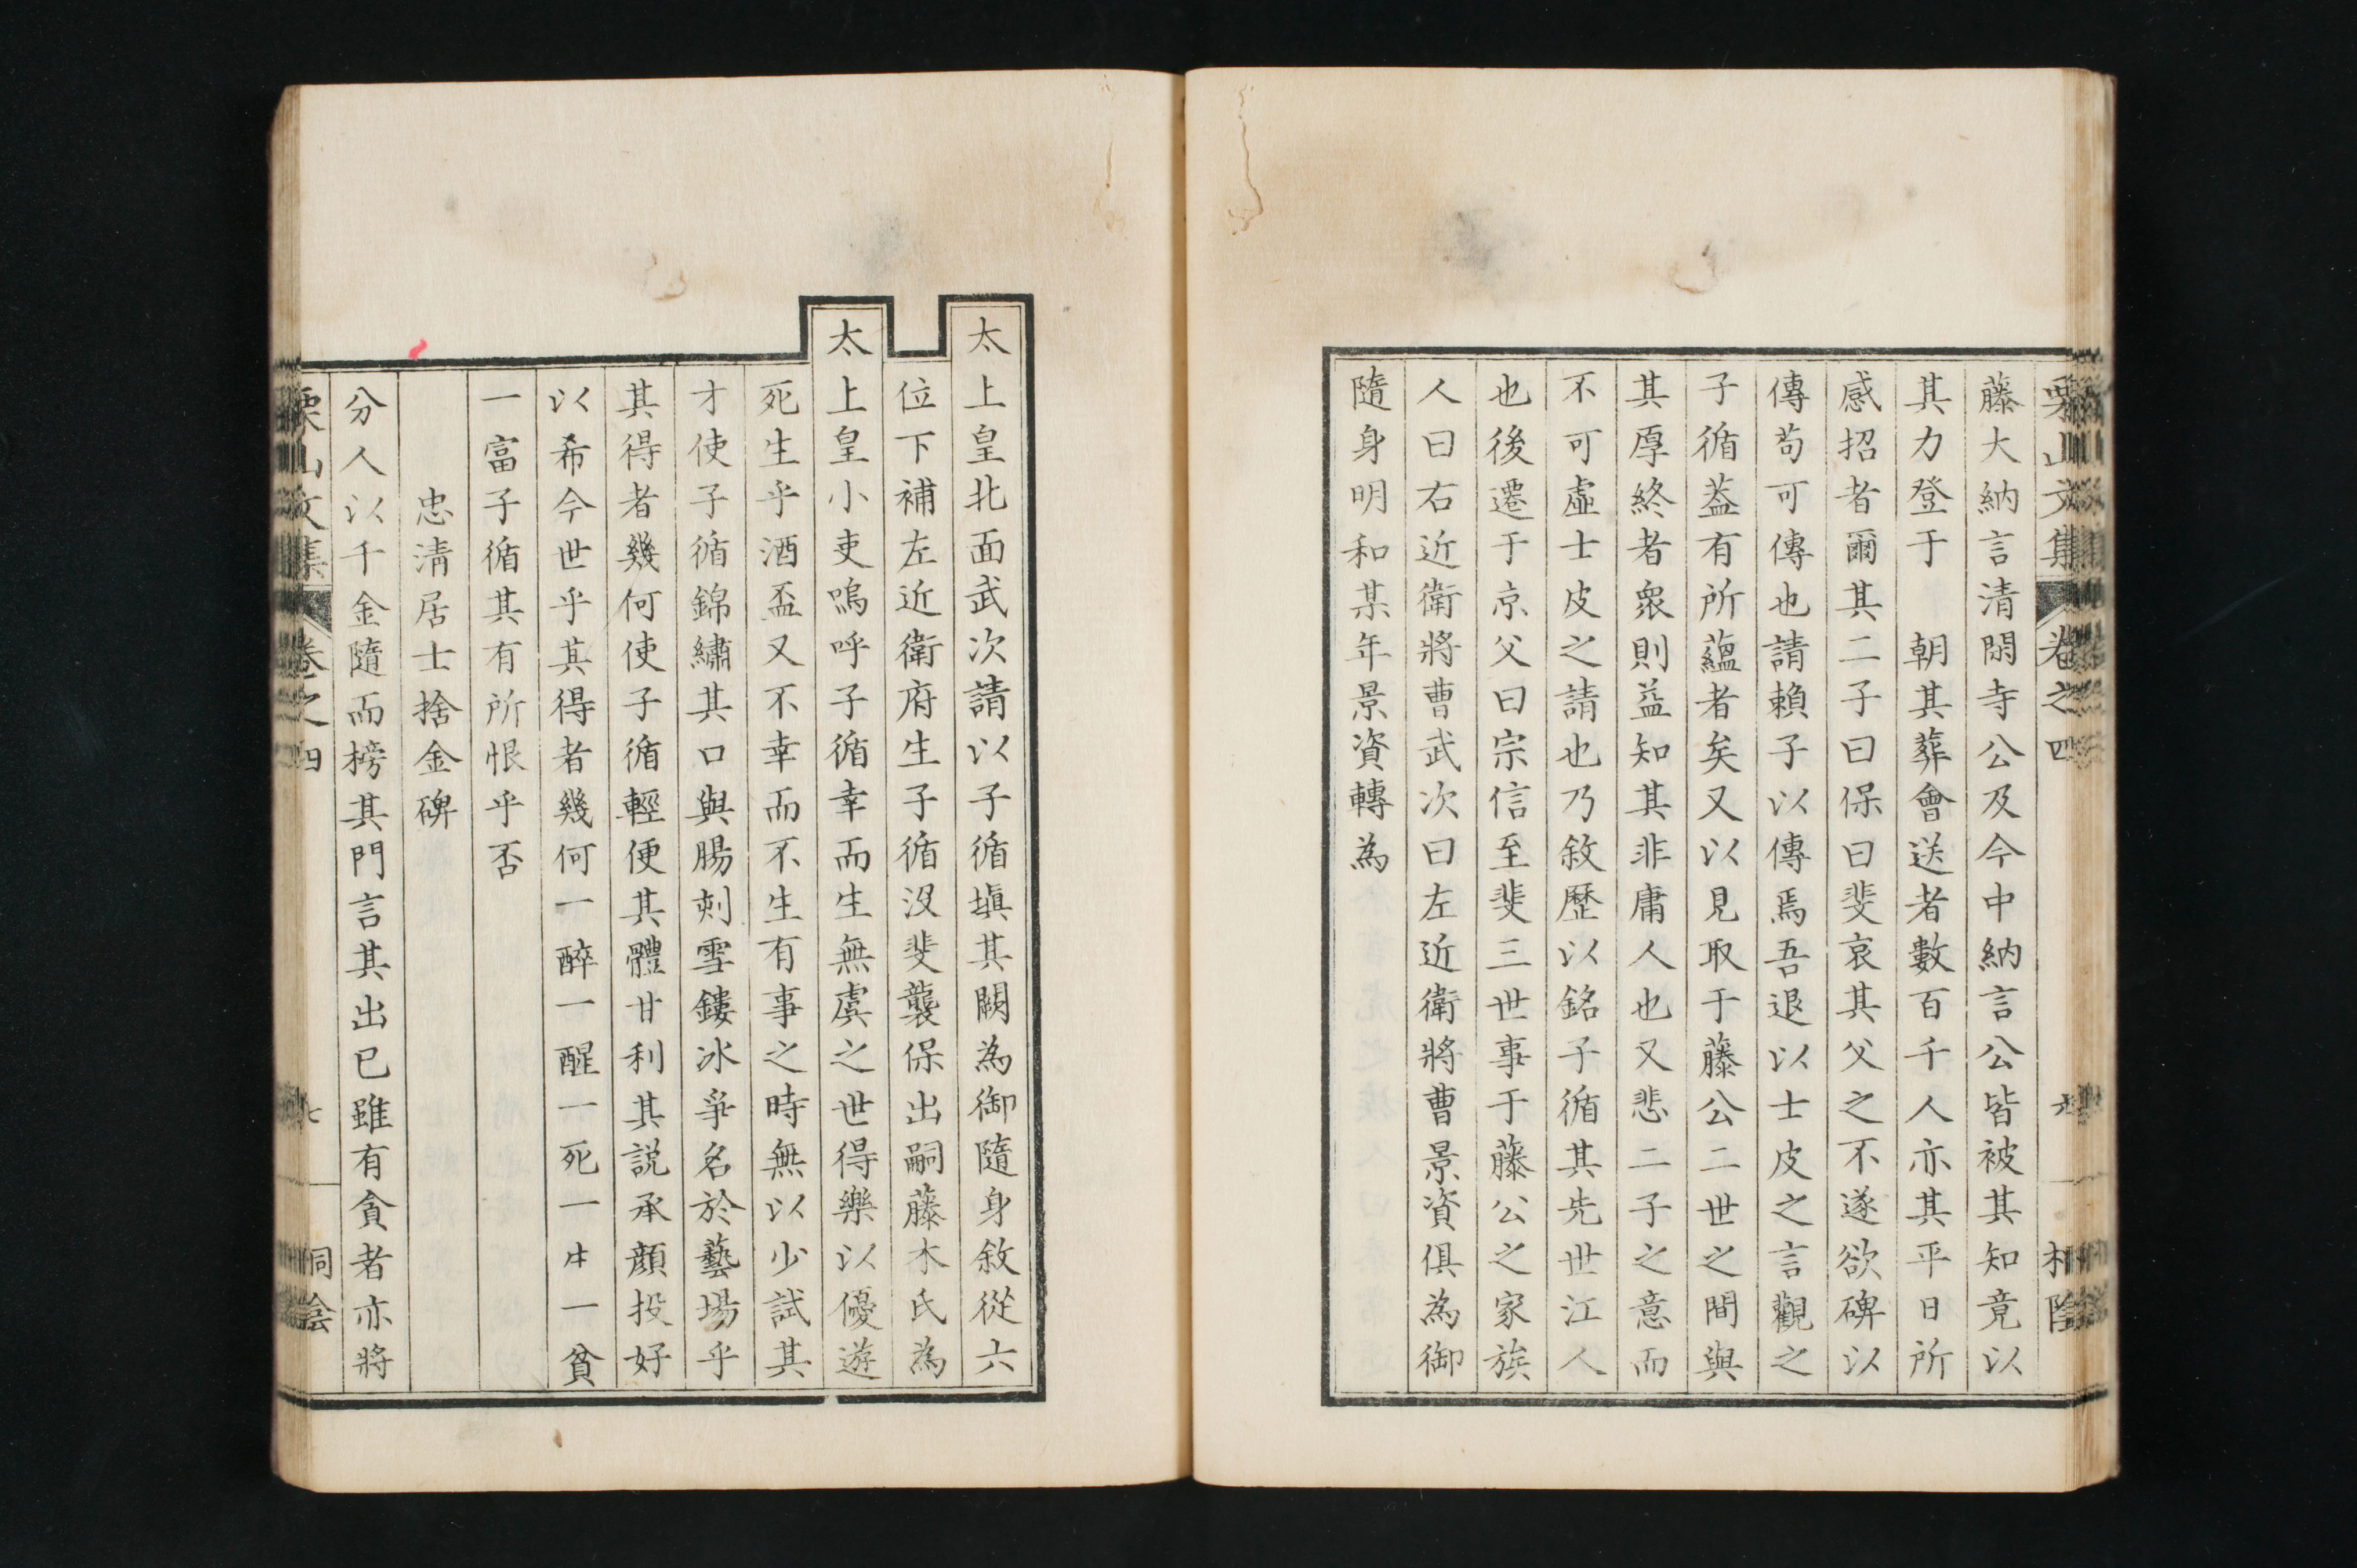 栗山文集 卷之四 六
藤大納言清閑寺公及今中納言公皆被其知竟以
其力登于 朝其葬會送者數百千人亦其平日所
感招者爾其二子曰保曰斐哀其父之不遂欲碑以
傳苟可傳也請賴子以傳焉吾退以士皮之言觀之
子循葢有所蘊者矣又以見取于藤公二世之間與
其厚終者衆則益知其非庸人也又悲二子之意而
不可虛士皮之請也乃敘歷以銘子循其先世江人
也後遷于京父曰宗信至斐三世事于藤公之家族
人曰右近衛將曹武次曰左近衛將曹景資俱為御
隨身明和某年景資轉為
太上皇北面武次請以子循塡其闕為御隨身敘從六
位下補左近衛府生子循沒斐襲保出嗣藤木氏為
太上皇小吏嗚呼子循幸而生無虞之世得樂以優遊
死生乎酒盃又不幸而不生有事之時無以少試其
才使子循錦繡其口與腸刻雪鏤冰爭名於藝場乎
其得者幾何使子循輕便其體甘利其説承顔投好
以希今世乎其得者幾何一醉一醒一死一生一貧
一富子循其有所恨乎否
忠淸居士捨金碑
分人以千金隨而榜其門言其出已雖有貪者亦將
栗山文集 卷之四 七